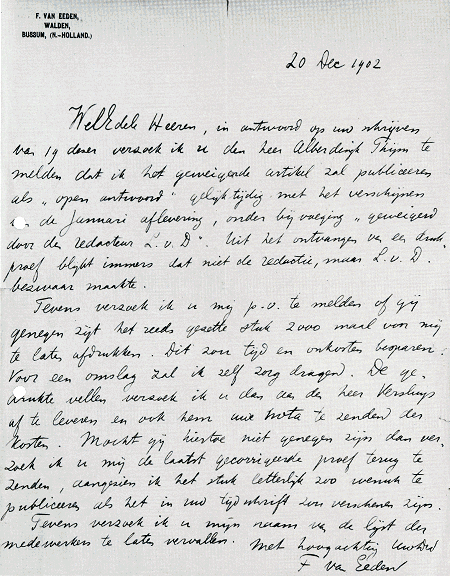 F. VAN EEDEN,
WALDEN,
BUSSUM, (N.-HOLLAND.)
20 Dec 1902
WelEdele Heeren, in antwoord op uw schrijven
van 19 dezer verzoek ik u den heer Alberdingk Thijm te
melden dat ik het geweigerde artikel zal publiceeren
als „open antwoord" gelijktijdig met het verschijnen
de Januari aflevering, onder bijvoeging „geweigerd
door den redacteur L. v. D". Uit het ontvangen van een druk-
proef blijkt immers dat niet de redactie, maar L. v. D.
bezwaar maakte.
Tevens verzoek ik u mij p.o. te melden of gij
genegen zijt het reeds gezette stuk 2000 maal voor mij
te laten afdrukken. Dit zou tijd en onkosten besparen.
Voor een omslag zal ik zelf zorg dragen. De ge-
drukte vellen verzoek ik u dan aan den heer Versluys
af te leveren en ook hem uwe nota te zenden der
kosten. Mocht gij hiertoe niet genegen zijn dan ver-
zoek ik u mij de laatst gecorrigeerde proef terug te
zenden, aangezien ik het stuk letterlijk zoo wensch te
publiceeren als het in uw tijdschrift zou verschenen zijn.
Tevens verzoek ik u mijn naam van de lijst der
medewerkers te laten vervallen. Met hoogachting
F van Eeden